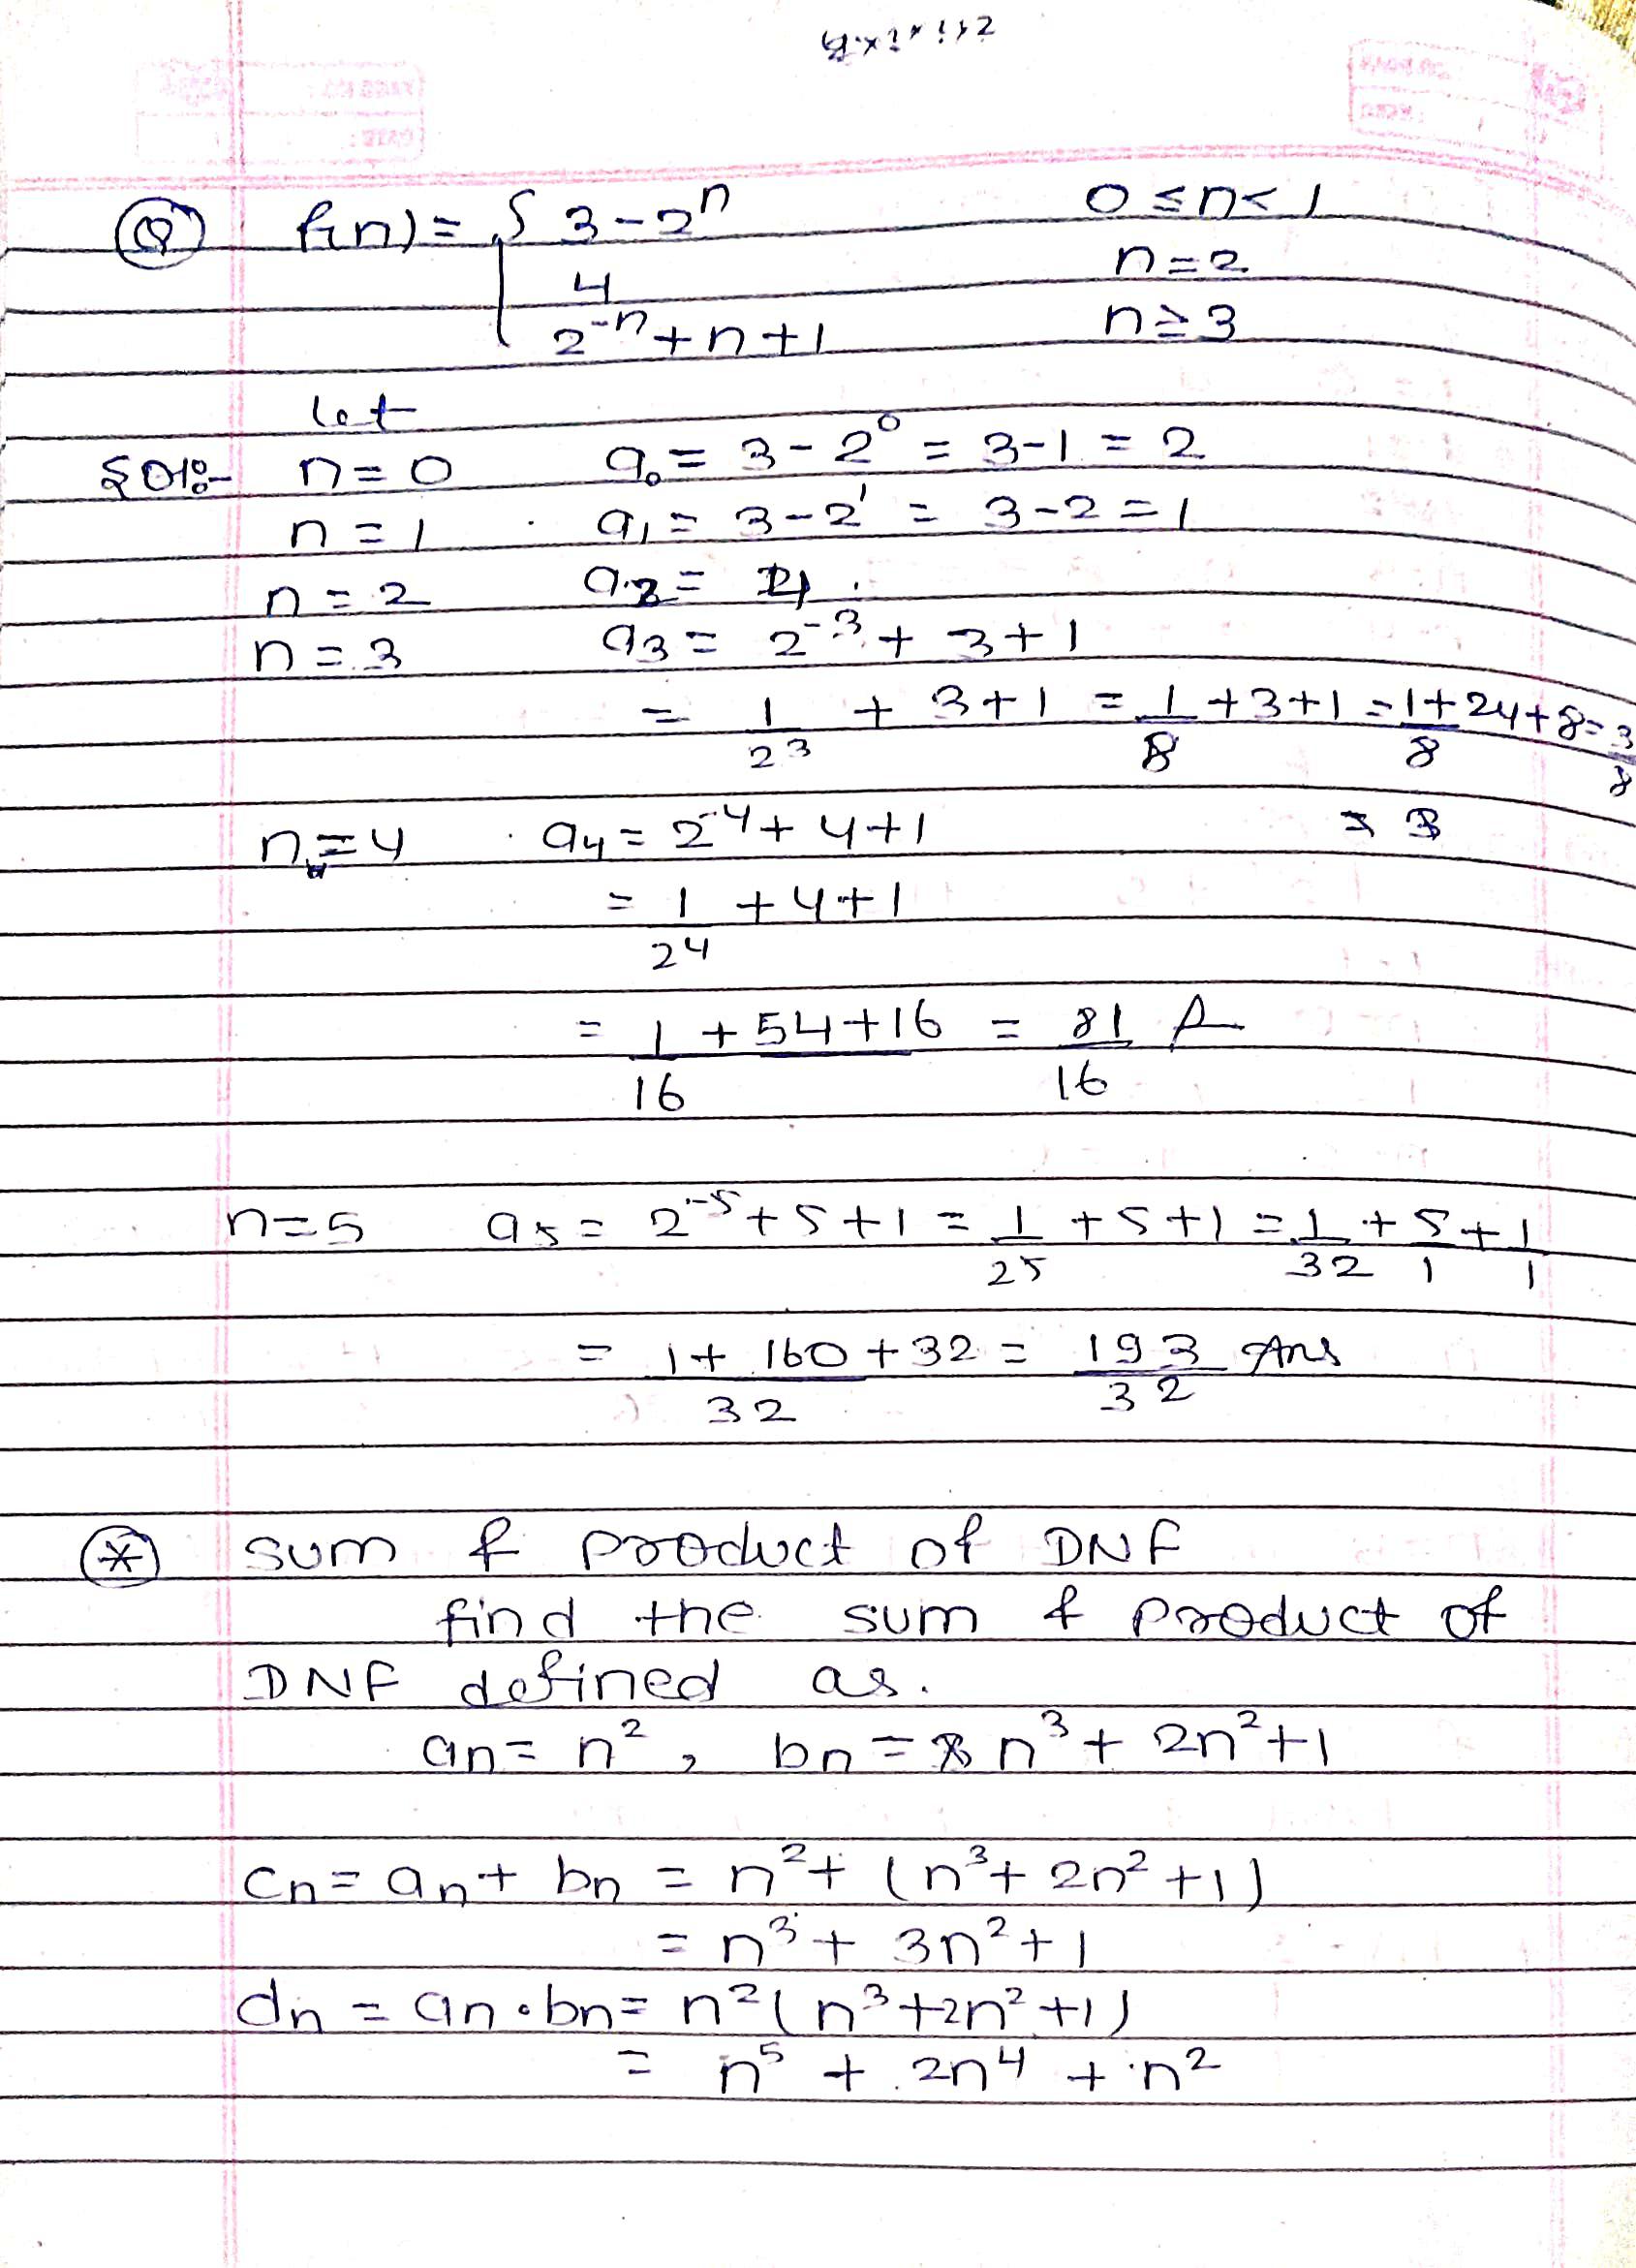 Q f(n) = { 3 - 2ⁿ 0 ≤ n < 1
4 n = 2
2⁻ⁿ + n + 1 n ≥ 3
let
Sol:- n = 0 a₀ = 3 - 2⁰ = 3 - 1 = 2
n = 1 a₁ = 3 - 2¹ = 3 - 2 = 1
n = 2 a₂ = 4
n = 3 a₃ = 2⁻³ + 3 + 1
= 1/2³ + 3 + 1 = 1/8 + 3 + 1 = 1 + 24 + 8/8 = 3
n = 4 a₄ = 2⁻⁴ + 4 + 1
= 1/2⁴ + 4 + 1
= 1 + 54 + 16/16 = 81/16 A
n = 5 a₅ = 2⁻⁵ + 5 + 1 = 1/2⁵ + 5 + 1 = 1/32 + 5/1 + 1/1
= 1 + 160 + 32/32 = 193/32 Ans
* sum & product of DNF
find the sum & product of
DNF defined as.
an = n², bn = n³ + 2n² + 1
Cn = an + bn = n² + (n³ + 2n² + 1)
= n³ + 3n² + 1
dn = an · bn = n² (n³ + 2n² + 1)
= n⁵ + 2n⁴ + n²